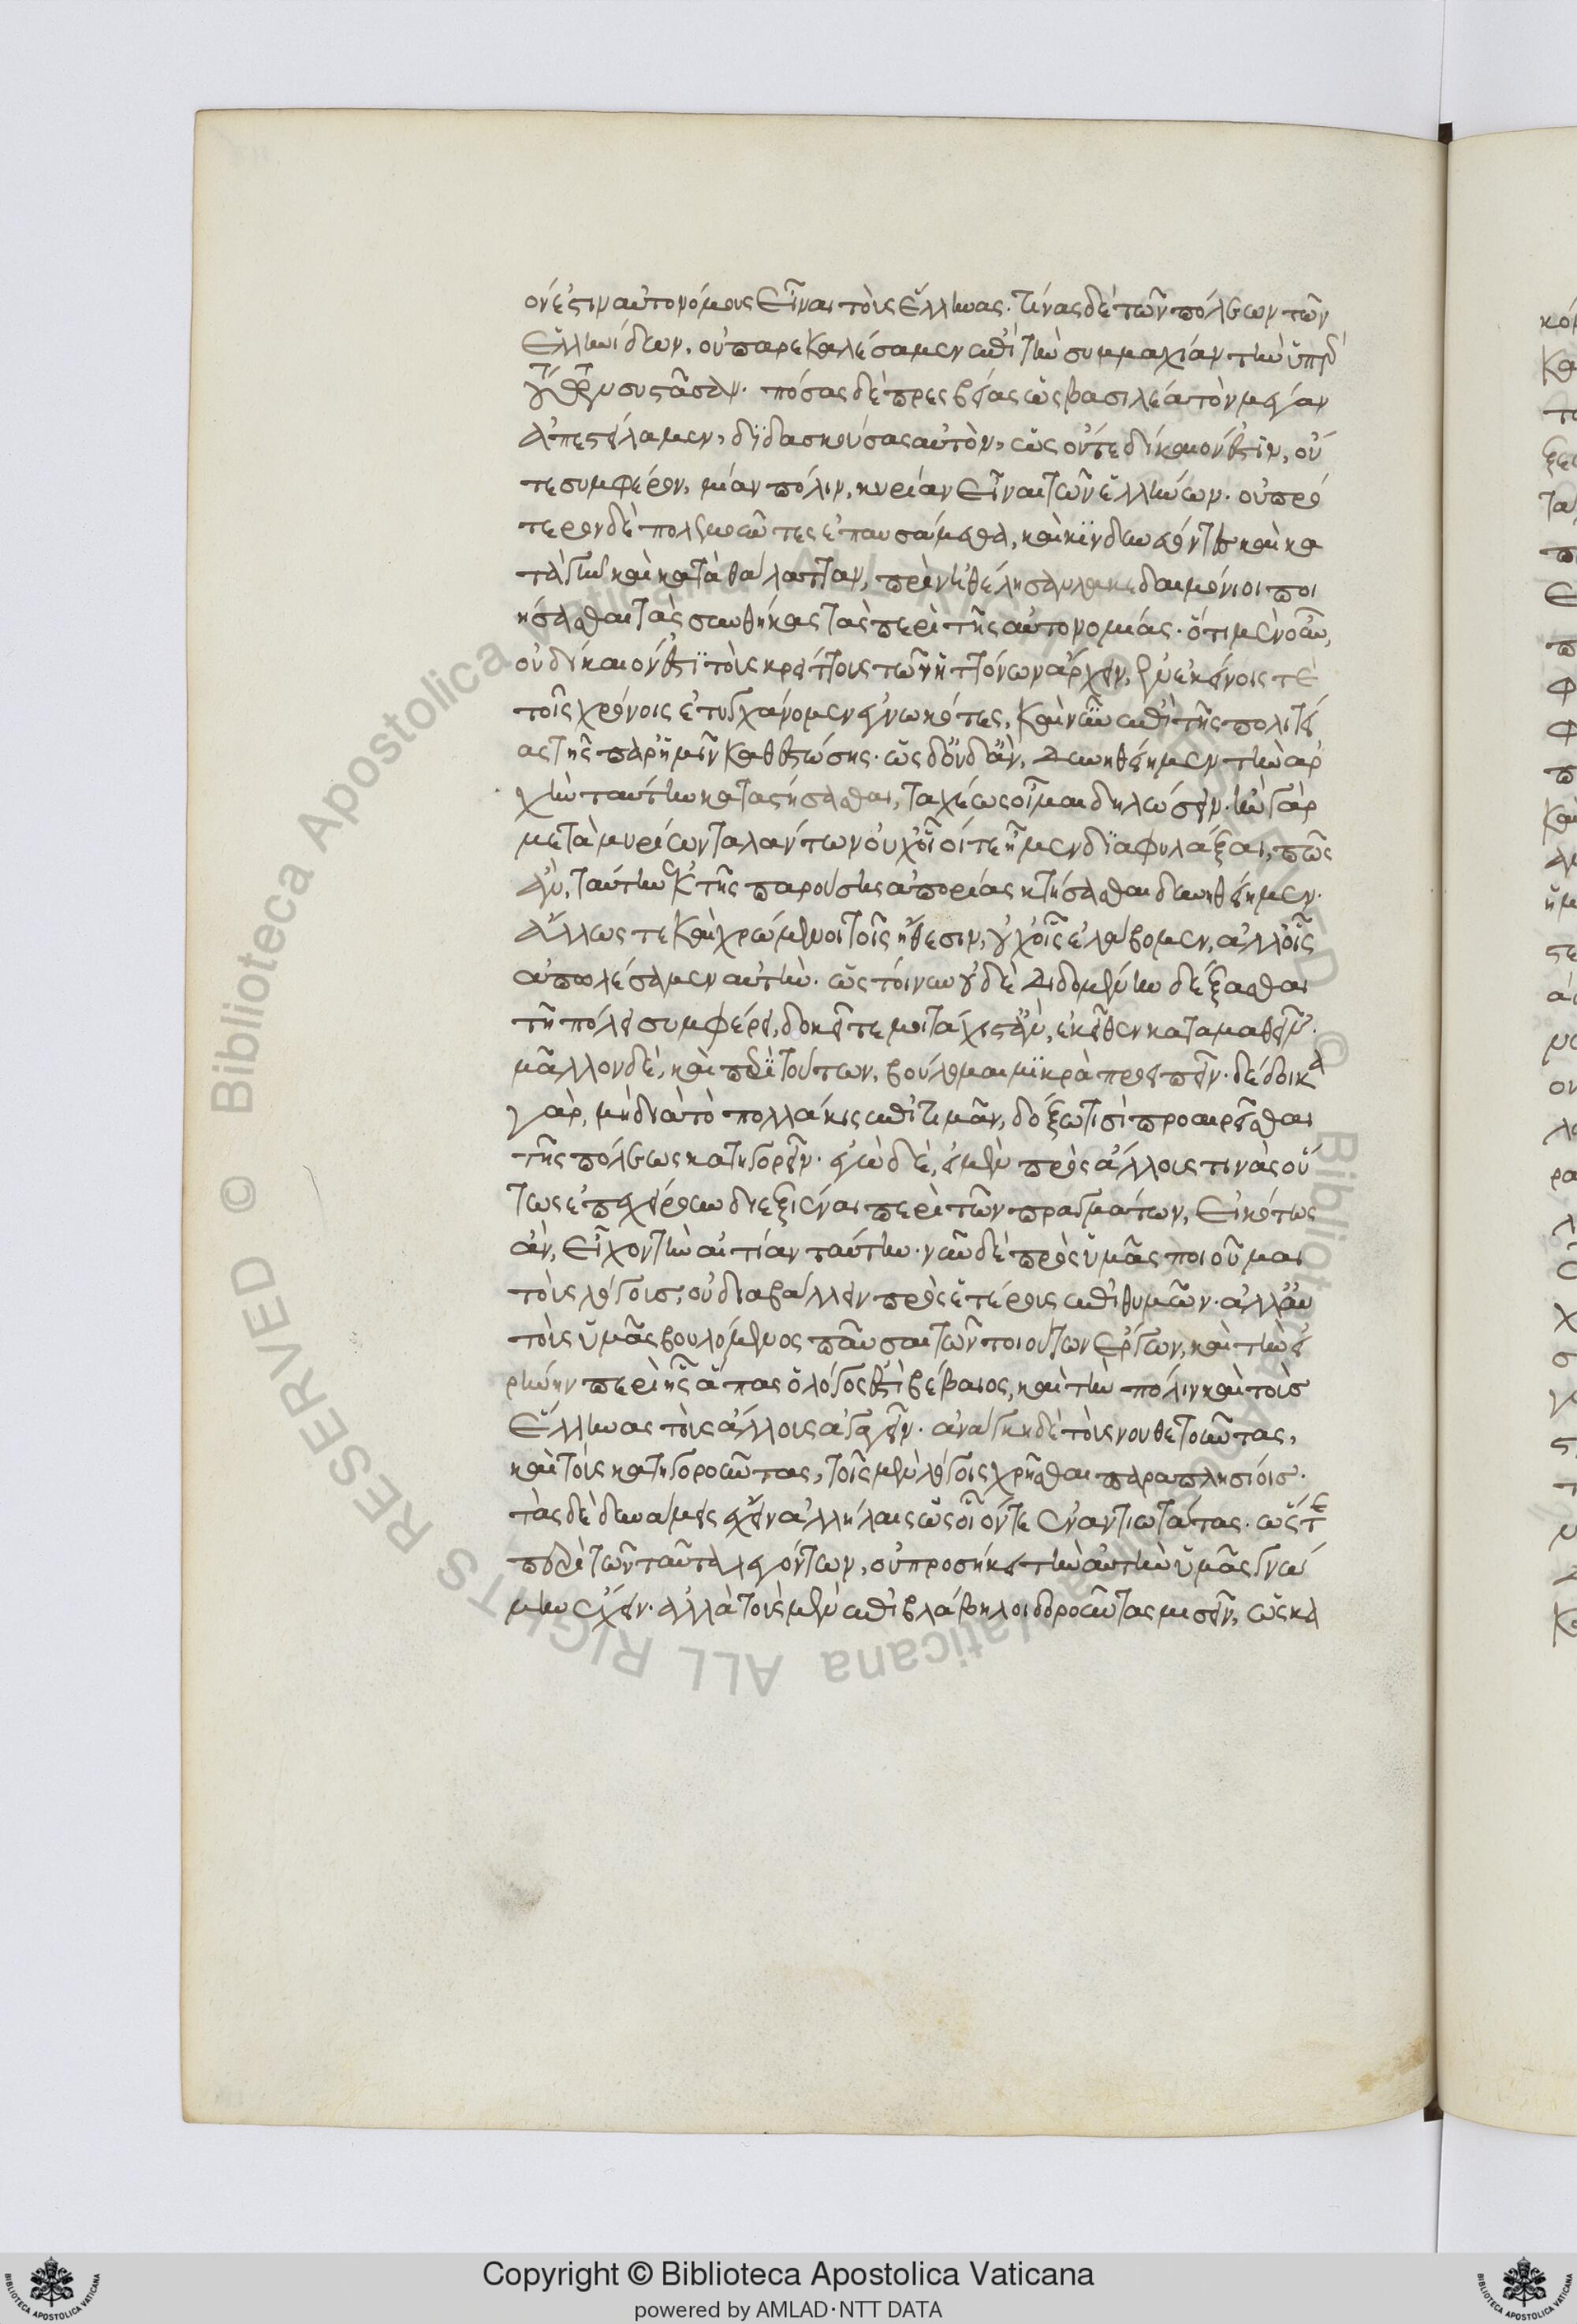 όν ἐστιν αὐτονόμους εἶναι τοὺς ἕλληνας. τίνας δὲ τῶν πόλεων τῶν
ἑλληνίδων, οὐ παρεκαλέσαμεν ἐπὶ τὴν συμμαχίαν τὴν ὑπὲρ
τούτων συστᾶσαν. πόσας δὲ πρεσβείας ὡς βασιλέα τὸν μέγαν
ἀπεστείλαμεν, διδασκούσας αὐτὸν, ὡς οὔτε δίκαιόν ἐστιν, οὔ
τε συμφέρον, μίαν πόλιν, κυρίαν εἶναι τῶν ἑλλήνων. οὐ πρό
τερον δὲ πολεμοῦντες ἐπαυσάμεθα, καὶ κινδυνεύοντες καὶ κα
τὰ γῆν καὶ κατὰ θάλατταν, πρὶν ἠθέλησαν λακεδαιμόνιοι ποι
ήσασθαι τὰς συνθήκας τὰς περὶ τῆς αὐτονομίας. ὅτι μὲν οὖν,
οὐ δίκαιόν ἐστι τοὺς κρείττους τῶν ἡττόνων ἄρχειν, ἐν ἐκείνοις τὲ
τοῖς χρόνοις ἐτυγχάνομεν ἐγνωκότες, καὶ νῦν ἐπὶ τῆς πολιτεί
ας τῆς παρ' ἡμῖν καθεστώσης. ὡς δ' οὐδ' ἂν, δυνηθείημεν τὴν ἀρ
χὴν ταύτην καταστήσασθαι, ταχέως οἶμαι δηλώσειν. ἣν γὰρ
μετὰ μυρίων ταλάντων οὐχ οἷοί τε ἦμεν διαφυλάξαι, πῶς
ἂν, ταύτην ἐκ τῆς παρούσης ἀπορίας κτήσασθαι δυνηθείημεν.
ἄλλως τε καὶ χρώμενοι τοῖς ἤθεσιν, οὐχ οἷς ἐλάβομεν, ἀλλ' οἷς
ἀπωλέσαμεν αὐτήν. ὡς τοίνυν οὐδὲ διδομένην δέξασθαι
τῇ πόλει συμφέρει, δοκεῖτέ μοι τάχιστ' ἂν, ἐκεῖθεν καταμαθεῖν.
μᾶλλον δὲ, καὶ περὶ τούτων, βούλομαι μικρὰ προειπεῖν. δέδοικα
γὰρ, μὴ διὰ τὸ πολλάκις ἐπιτιμᾶν, δόξω τισὶ προαιρεῖσθαι
τῆς πόλεως κατηγορεῖν. ἐγὼ δὲ, εἰ μὲν πρὸς ἄλλους τινὰς οὕ
τως ἐπεχείρουν διεξιέναι περὶ τῶν πραγμάτων, εἰκότως
ἂν, εἶχον τὴν αἰτίαν ταύτην. νῦν δὲ πρὸς ὑμᾶς ποιοῦμαι
τοὺς λόγους, οὐ διαβάλλειν πρὸς ἑτέρους ἐπιθυμῶν. ἀλλ' αὐ
τοὺς ὑμᾶς βουλόμενος παῦσαι τῶν τοιούτων ἔργων, καὶ τὴν εἰ
ρήνην περὶ ἧς ἅπας ὁ λόγος ἐστὶ βεβαίως, καὶ τὴν πόλιν καὶ τοὺς
ἕλληνας τοὺς ἄλλους ἄγειν. ἀνάγκη δὲ τοὺς νουθετοῦντας,
καὶ τοὺς κατηγοροῦντας, τοῖς μὲν λόγοις χρῆσθαι παραπλησίοις.
τὰς δὲ δυνάμεις ἔχειν ἀλλήλαις ὡς οἷόν τε ἐναντιωτάτας. ὥστε
περὶ τῶν ταῦτα λεγόντων, οὐ προσήκει τὴν αὐτὴν ὑμᾶς γνώ
μην ἔχειν. ἀλλὰ τοὺς μὲν ἐπὶ βλάβῃ λοιδοροῦντας μισεῖν, ὡς κα